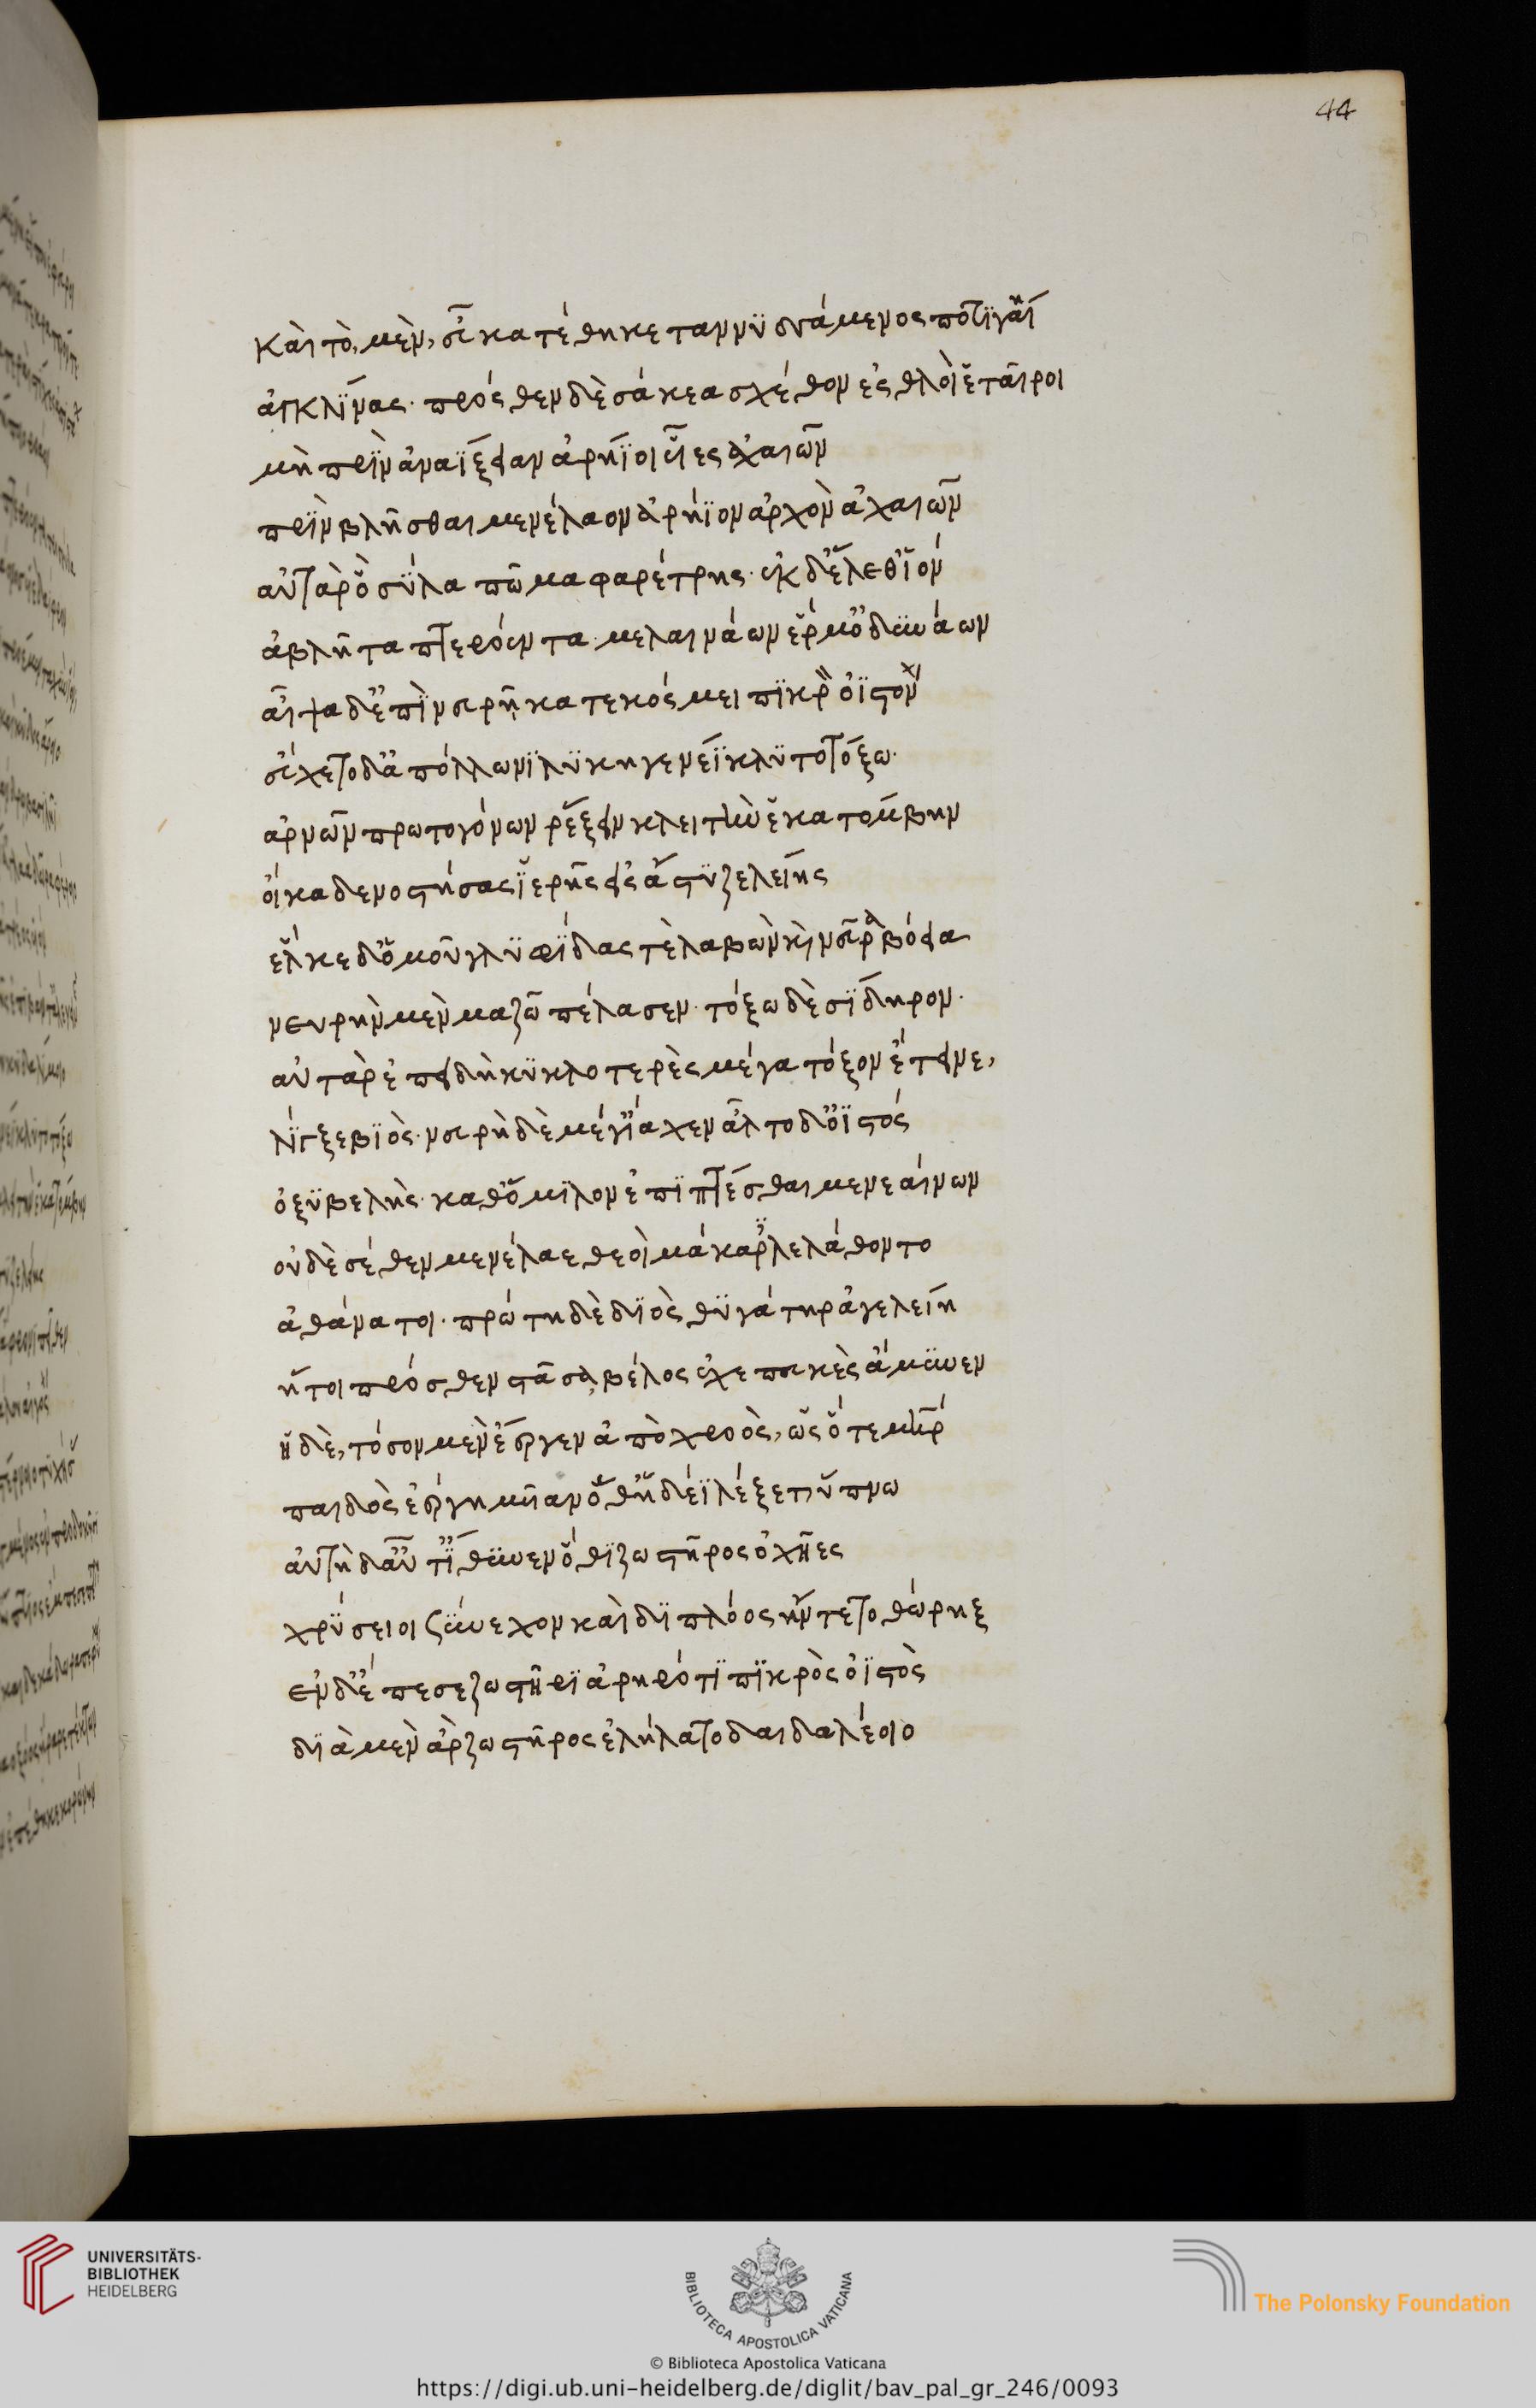 44
Καὶ τὸ, μὲν, εὖ κατέθηκε ταννϋσσάμενος ποτῒ γαίη
ἀγκλΐνας· πρόσθεν δὲ σάκεα σχέθον ἐσθλοὶ ἑταῖροι
μὴ πρῒν ἀναΐξειαν ἀρήϊοι υἷες ἀχαιῶν
πρῒν βλῆσθαι μενέλαον ἀρήϊον ἀρχὸν ἀχαιῶν
αὐτὰρ ὃ σύλα πῶμα φαρέτρης· ἐκ δἕλεθ ἰόν
ἀβλῆτα πτερόεντα· μελαινάων ἕρμ ὀδϋνάων
αἶψα δἐπῒ νευρῆ κατεκόσμει πϊκρὸν ὀϊστόν
εὔχετο δἀπόλλωνϊ λϋκηγενέϊ κλϋτοτόξω·
ἀρνῶν πρωτογόνων ῥέξειν κλειτὴν ἑκατόμβην
οἴκαδε νοστήσας ἱερῆς εἰς ἄστϋ ζελείης
ἕλκε δὁμοῦ γλϋφΐδας τὲ λαβὼν καὶ νεῦρα βόεια
νευρὴν μὲν μαζῶ πέλασεν· τόξω δὲ σΐδηρον·
αὐτὰρ ἐπειδὴ κϋκλοτερὲς μέγα τόξον ἔτεινε,
λΐγξε βϊὸς· νευρὴ δὲ μέγ ἴαχεν ἆλτο δὀϊστός
ὀξϋβελὴς· καθ ὅμϊλον ἐπϊπτέσθαι μενεαίνων
οὐδὲ σέθεν μενέλαε θεοὶ μάκαρες λελάθοντο
ἀθάνατοι· πρώτη δὲ δϊὸς θϋγάτηρ ἀγελείη
ἥ τοι πρόσθεν στᾶσα, βέλος ἐχεπευκὲς ἄμϋνεν
ἣ δὲ, τόσον μὲν ἔεργεν ἀπὸ χροὸς, ὡς ὅτε μήτηρ
παιδὸς ἐέργη μυῖαν ὅθ ἡδέϊ λέξεται ὕπνω
αὐτὴ δαὖτ ἴθϋνεν ὅθϊ ζωστῆρος ὀχῆες
χρύσειοι σύνεχον καὶ δϊπλόος ἤντετο θώρηξ
ἐν δἔπεσε ζωστῆρϊ ἀρηρότϊ πϊκρὸς ὀϊστὸς
δϊὰ μὲν ἂρ ζωστῆρος ἐλήλατο δαιδαλέοιο
UNIVERSITÄTS-
BIBLIOTHEK
HEIDELBERG
BIBLIOTECA APOSTOLICA VATICANA
The Polonsky Foundation
© Biblioteca Apostolica Vaticana
https://digi.ub.uni-heidelberg.de/diglit/bav_pal_gr_246/0093